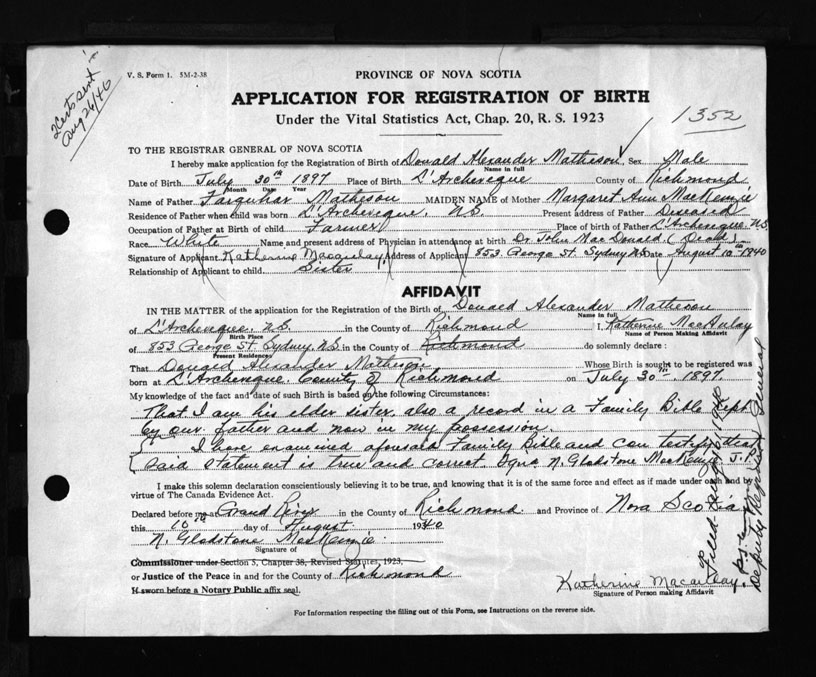 V. S. Form 1. 5M-2-38
PROVINCE OF NOVA SCOTIA
sent
Aug 26/40
APPLICATION FOR REGISTRATION OF BIRTH
1352
Under the Vital Statistics Act, Chap. 20, R. S. 1923
TO THE REGISTRAR GENERAL OF NOVA SCOTIA
I hereby make application for the Registration of Birth of Donald Alexander Matheson Sex Male
Name in full
Date of Birth July 30th 1897 Place of Birth L'Archeveque County of Richmond
Month Date Year
Name of Father Farquhar Matheson MAIDEN NAME of Mother Margaret Ann MacKenzie
Residence of Father when child was born L'Archeveque, N.S. Present address of Father Diseased
Occupation of Father at Birth of child Farmer Place of Birth of Father L'Archeveque, N.S.
Race White Name and present address of Physician in attendance at birth Dr. John MacDonald (Dead)
Signature of Applicant Katherine Macaulay Address of Applicant 853 George St. Sydney N.S. Date August 10th 1940
Relationship of Applicant to child Sister
AFFIDAVIT
IN THE MATTER of the application for the Registration of the Birth of Donald Alexander Matheson
Name in full
of L'Archeveque, N.S. in the County of Richmond I, Katherine MacAulay
Birth Place Name of Person Making Affidavit
of 853 George St. Sydney, N.S. in the County of Richmond do solemnly declare :
Present Residence
That Donald Alexander Matheson Whose Birth is sought to be registered was
born at L'Archeveque County of Richmond on July 30th 1897.
My knowledge of the fact and date of such Birth is based on the following Circumstances:
That I am his elder sister, also a record in a Family Bible kept
by our father and now in my possession.
I have examined aforesaid Family Bible and can testify that
said statement is true and correct. Sgns. N. Gladstone MacKenzie J.P.
I make this solemn declaration conscientiously believing it to be true, and knowing that it is of the same force and effect as if made under oath and by
virtue of The Canada Evidence Act.
Declared before me at Grand River in the County of Richmond and Province of Nova Scotia
this 10th day of August 1940
N. Gladstone MacKenzie
Signature of
Commissioner under Section 5, Chapter 38, Revised Statutes, 1923,
or Justice of the Peace in and for the County of Richmond
If sworn before a Notary Public affix seal.
Katherine Macaulay
Signature of Person making Affidavit
Filed
Deputy Registrar General
For Information respecting the filling out of this Form, see Instructions on the reverse side.